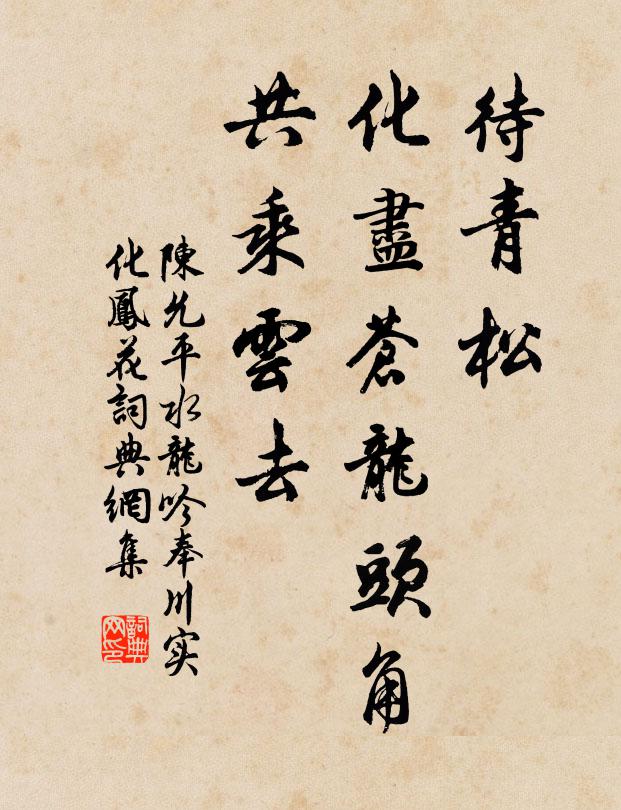 待青松
化盡蒼龍頭角
共乘雲去
陳允平水龍吟奉川实
化鳳花詞典網集
詞典
网印